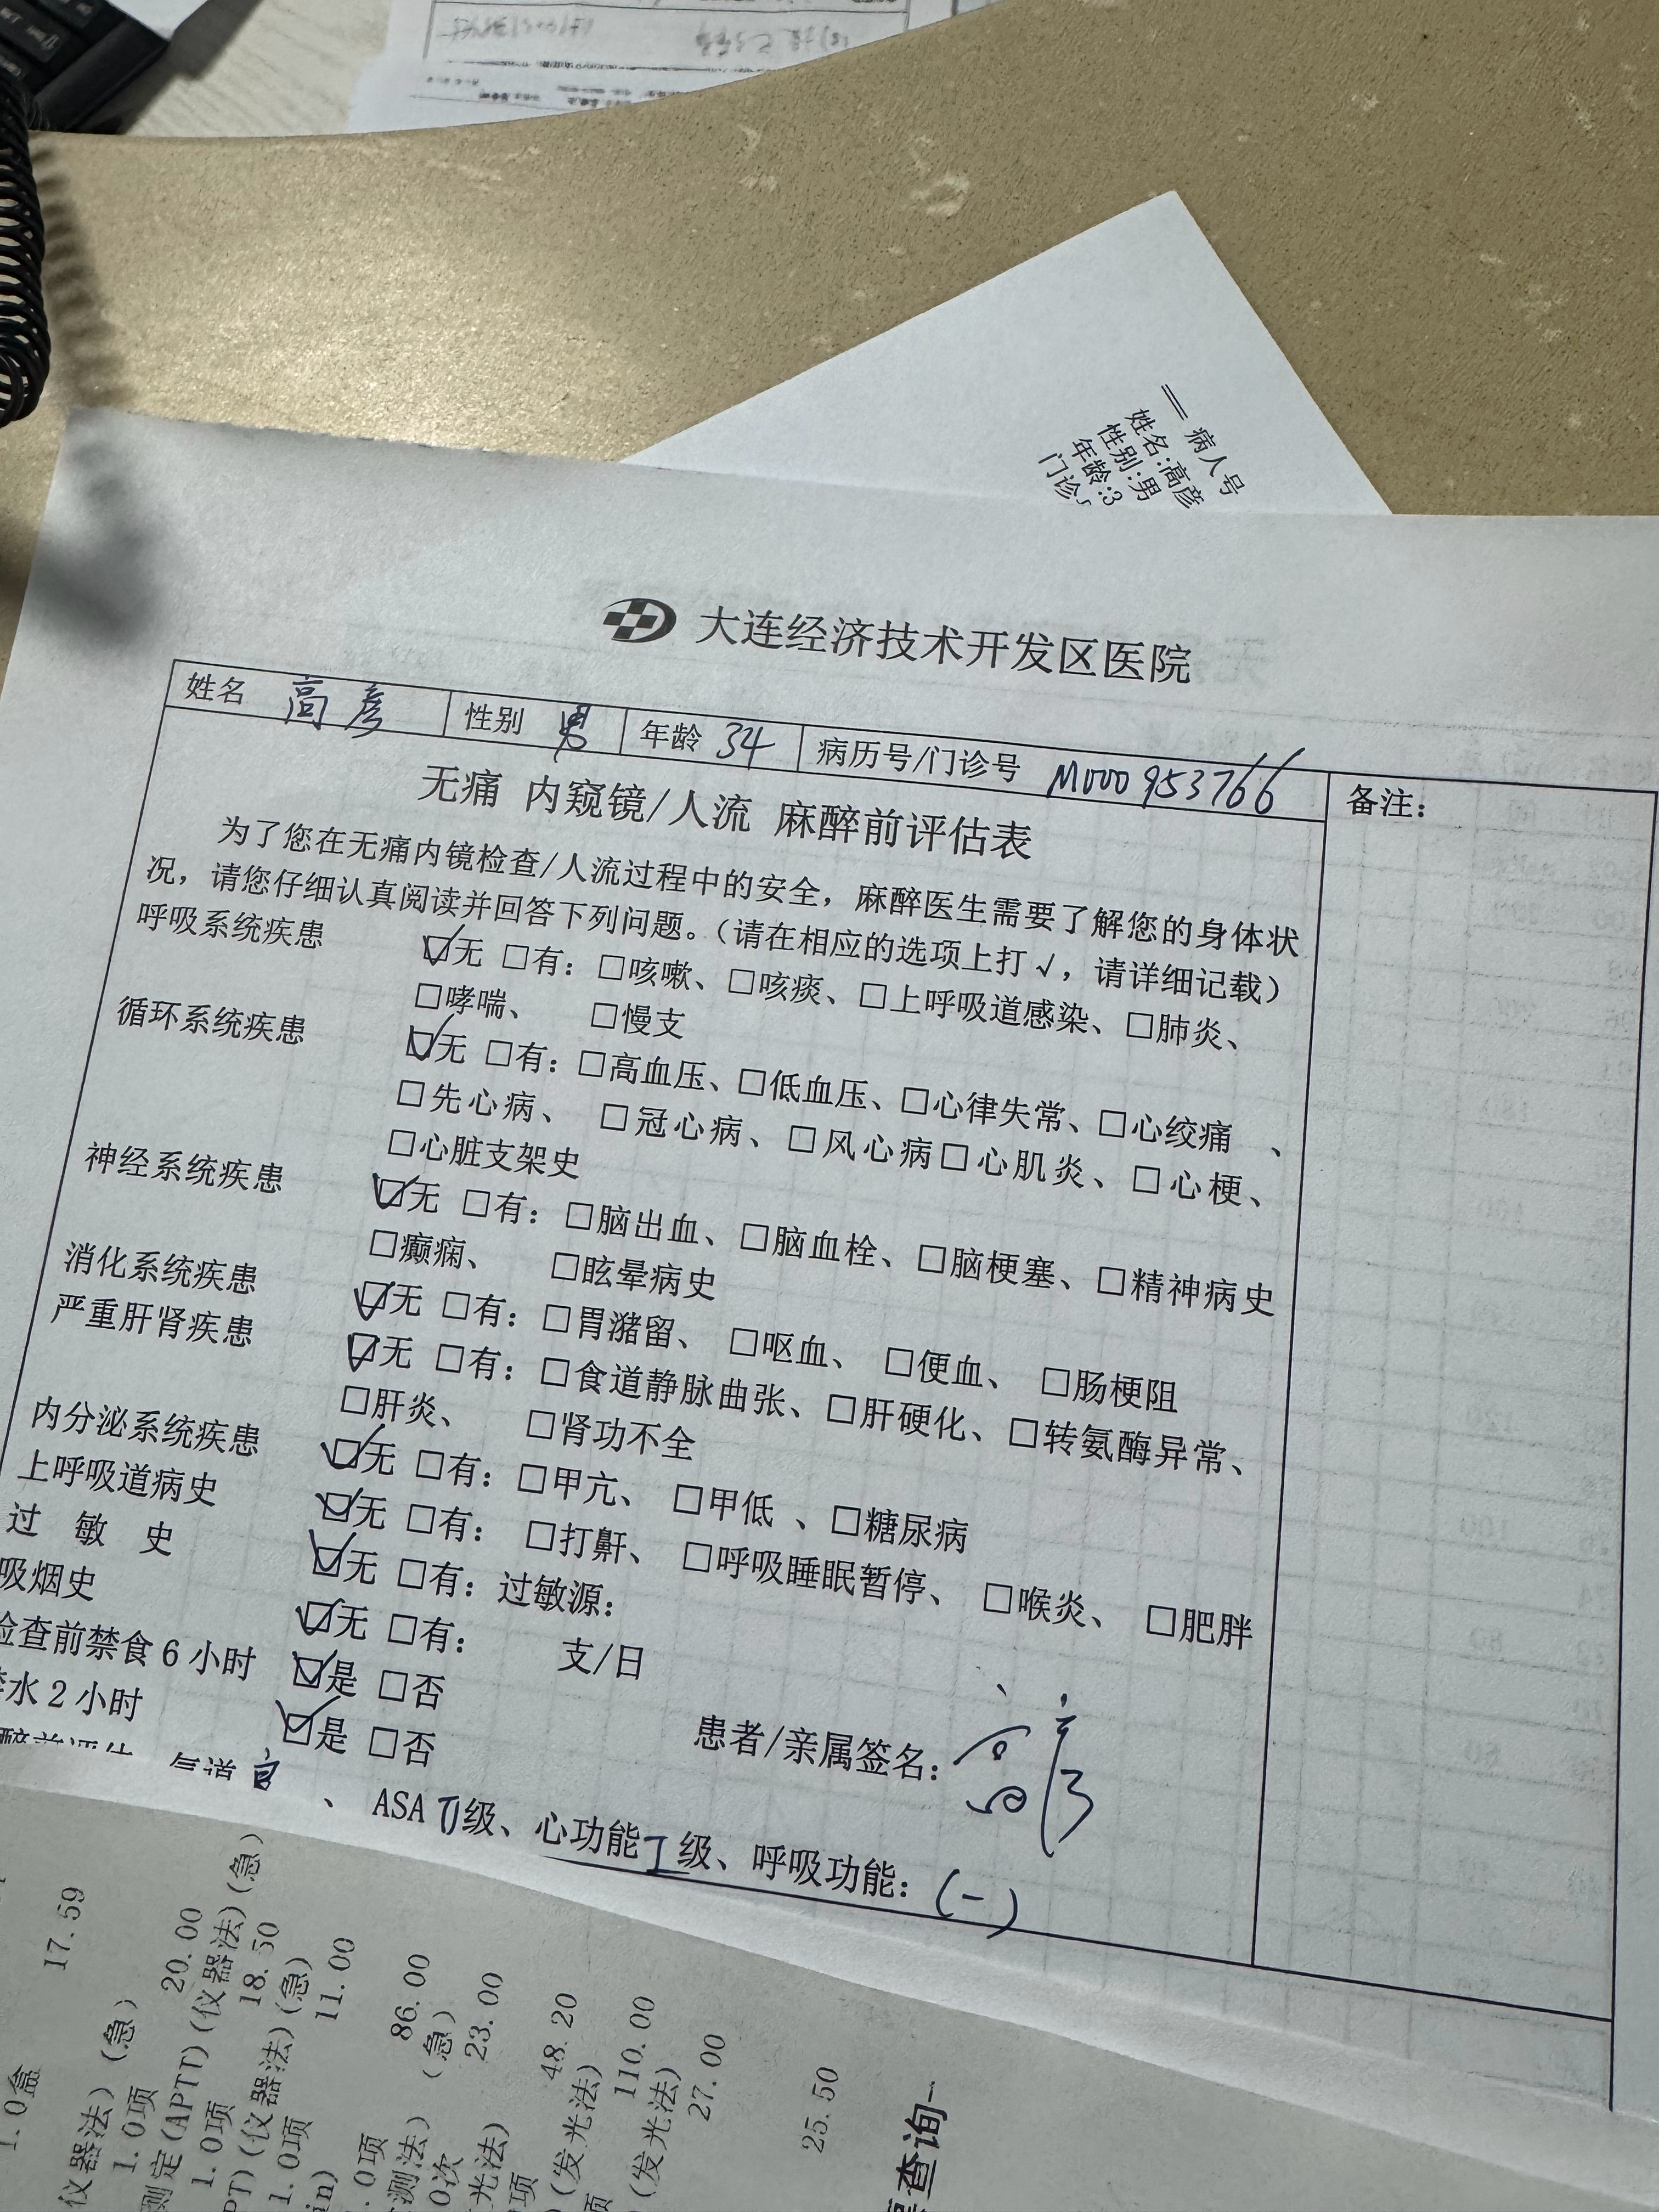 病人号
姓名:高彦
性别:男
年龄:3
门诊
大连经济技术开发区医院
姓名 高彦 性别 男 年龄 34 病历号/门诊号 M000953766 备注:
无痛 内窥镜/人流 麻醉前评估表
为了您在无痛内镜检查/人流过程中的安全，麻醉医生需要了解您的身体状
况，请您仔细认真阅读并回答下列问题。（请在相应的选项上打√，请详细记载）
呼吸系统疾患 ☑无 □有：□咳嗽、□咳痰、□上呼吸道感染、□肺炎、
□哮喘、 □慢支
循环系统疾患 ☑无 □有：□高血压、□低血压、□心律失常、□心绞痛 、
□先心病、 □冠心病、□风心病□心肌炎、□心梗、
□心脏支架史
神经系统疾患 ☑无 □有：□脑出血、□脑血栓、□脑梗塞、□精神病史
□癫痫、 □眩晕病史
消化系统疾患 ☑无 □有：□胃潴留、 □呕血、 □便血、 □肠梗阻
严重肝肾疾患 ☑无 □有：□食道静脉曲张、□肝硬化、□转氨酶异常、
□肝炎、 □肾功不全
内分泌系统疾患 ☑无 □有：□甲亢、 □甲低 、□糖尿病
上呼吸道病史 ☑无 □有： □打鼾、 □呼吸睡眠暂停、 □喉炎、 □肥胖
过 敏 史 ☑无 □有：过敏源：
吸烟史 ☑无 □有： 支/日
检查前禁食 6 小时 ☑是 □否
禁水 2 小时 ☑是 □否
患者/亲属签名：高彦
、 ASA II级、心功能 I 级、呼吸功能：(-)
17.59
1.0盒
仪器法)(急)
1.0项 20.00
测定(APTT)(仪器法)(急)
1.0项 18.50
PT)(仪器法)(急)
1.0项 11.00
in)
.0项 86.00
测法) (急)
0次 23.00
光法)
项 48.20
(发光法)
项 110.00
(发光法)
27.00
25.50
查询